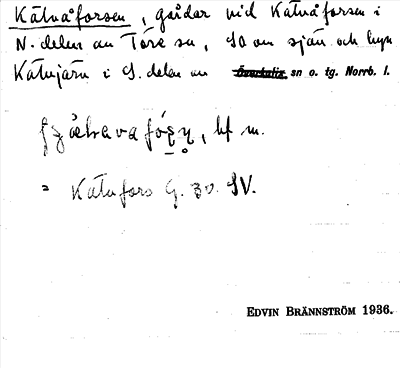 Kätvåforsen, gårdar vid Kätvåforsen i
N. delen av Töre sn, SO om sjön och byn
Kätvjärn i S. delen av Överkalix sn o. tg. Norrb. l.
hf m.
= Kätufors G. 30. SV.
EDVIN BRÄNNSTRÖM 1936.